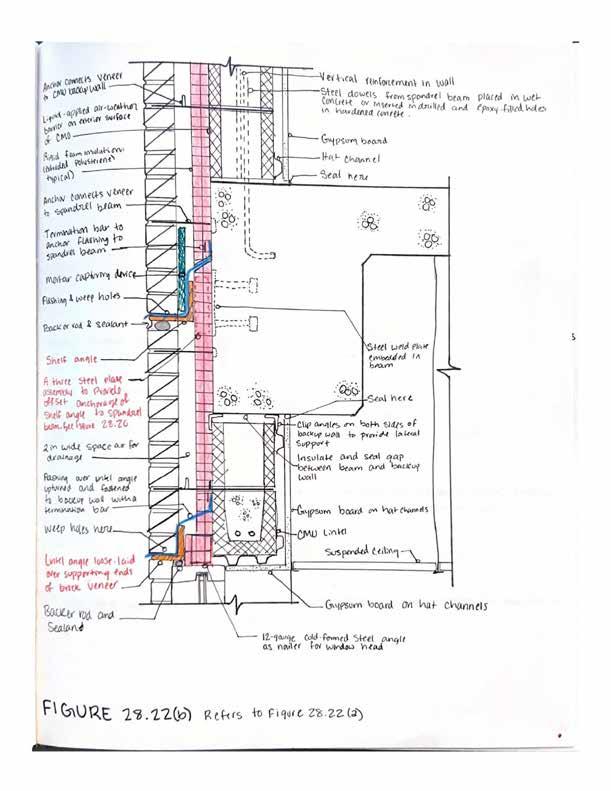 Anchor connects veneer
to CMU backup wall
Liquid-applied air-weather
barrier on exterior surface
of CMU
Rigid foam insulation
(extruded polystyrene
typical)
Anchor connects veneer
to spandrel beam
Termination bar to
anchor flashing to
spandrel beam
Mortar capturing device
Flashing & weep holes
Backer rod & sealant
Shelf angle
A three steel plate
assembly to provide
offset anchorage of
shelf angle to spandrel
beam. See Figure
28.20
2 in wide space air for
drainage
Flashing over lintel angle
upturned and fastened
to backup wall with a
termination bar
Weep holes here
Lintel angle loose-laid
over supporting ends
of brick veneer
Backer rod and
Sealand
Vertical reinforcement in wall
Steel dowels from spandrel beam placed in wet
concrete or inserted in drilled and epoxy-filled holes
in hardened concrete.
Gypsum board
Hat channel
Seal here
Steel weld plate
embedded in
beam
Seal here
Clip angles on both sides of
backup wall to provide lateral
support
Insulate and seal gap
between beam and backup
wall
Gypsum board on hat channels
CMU Lintel
Suspended Ceiling
Gypsum board on hat channels
12-gauge cold-formed steel angle
as nailer for window head
FIGURE 28.22(b) Refers to Figure 28.22(a)